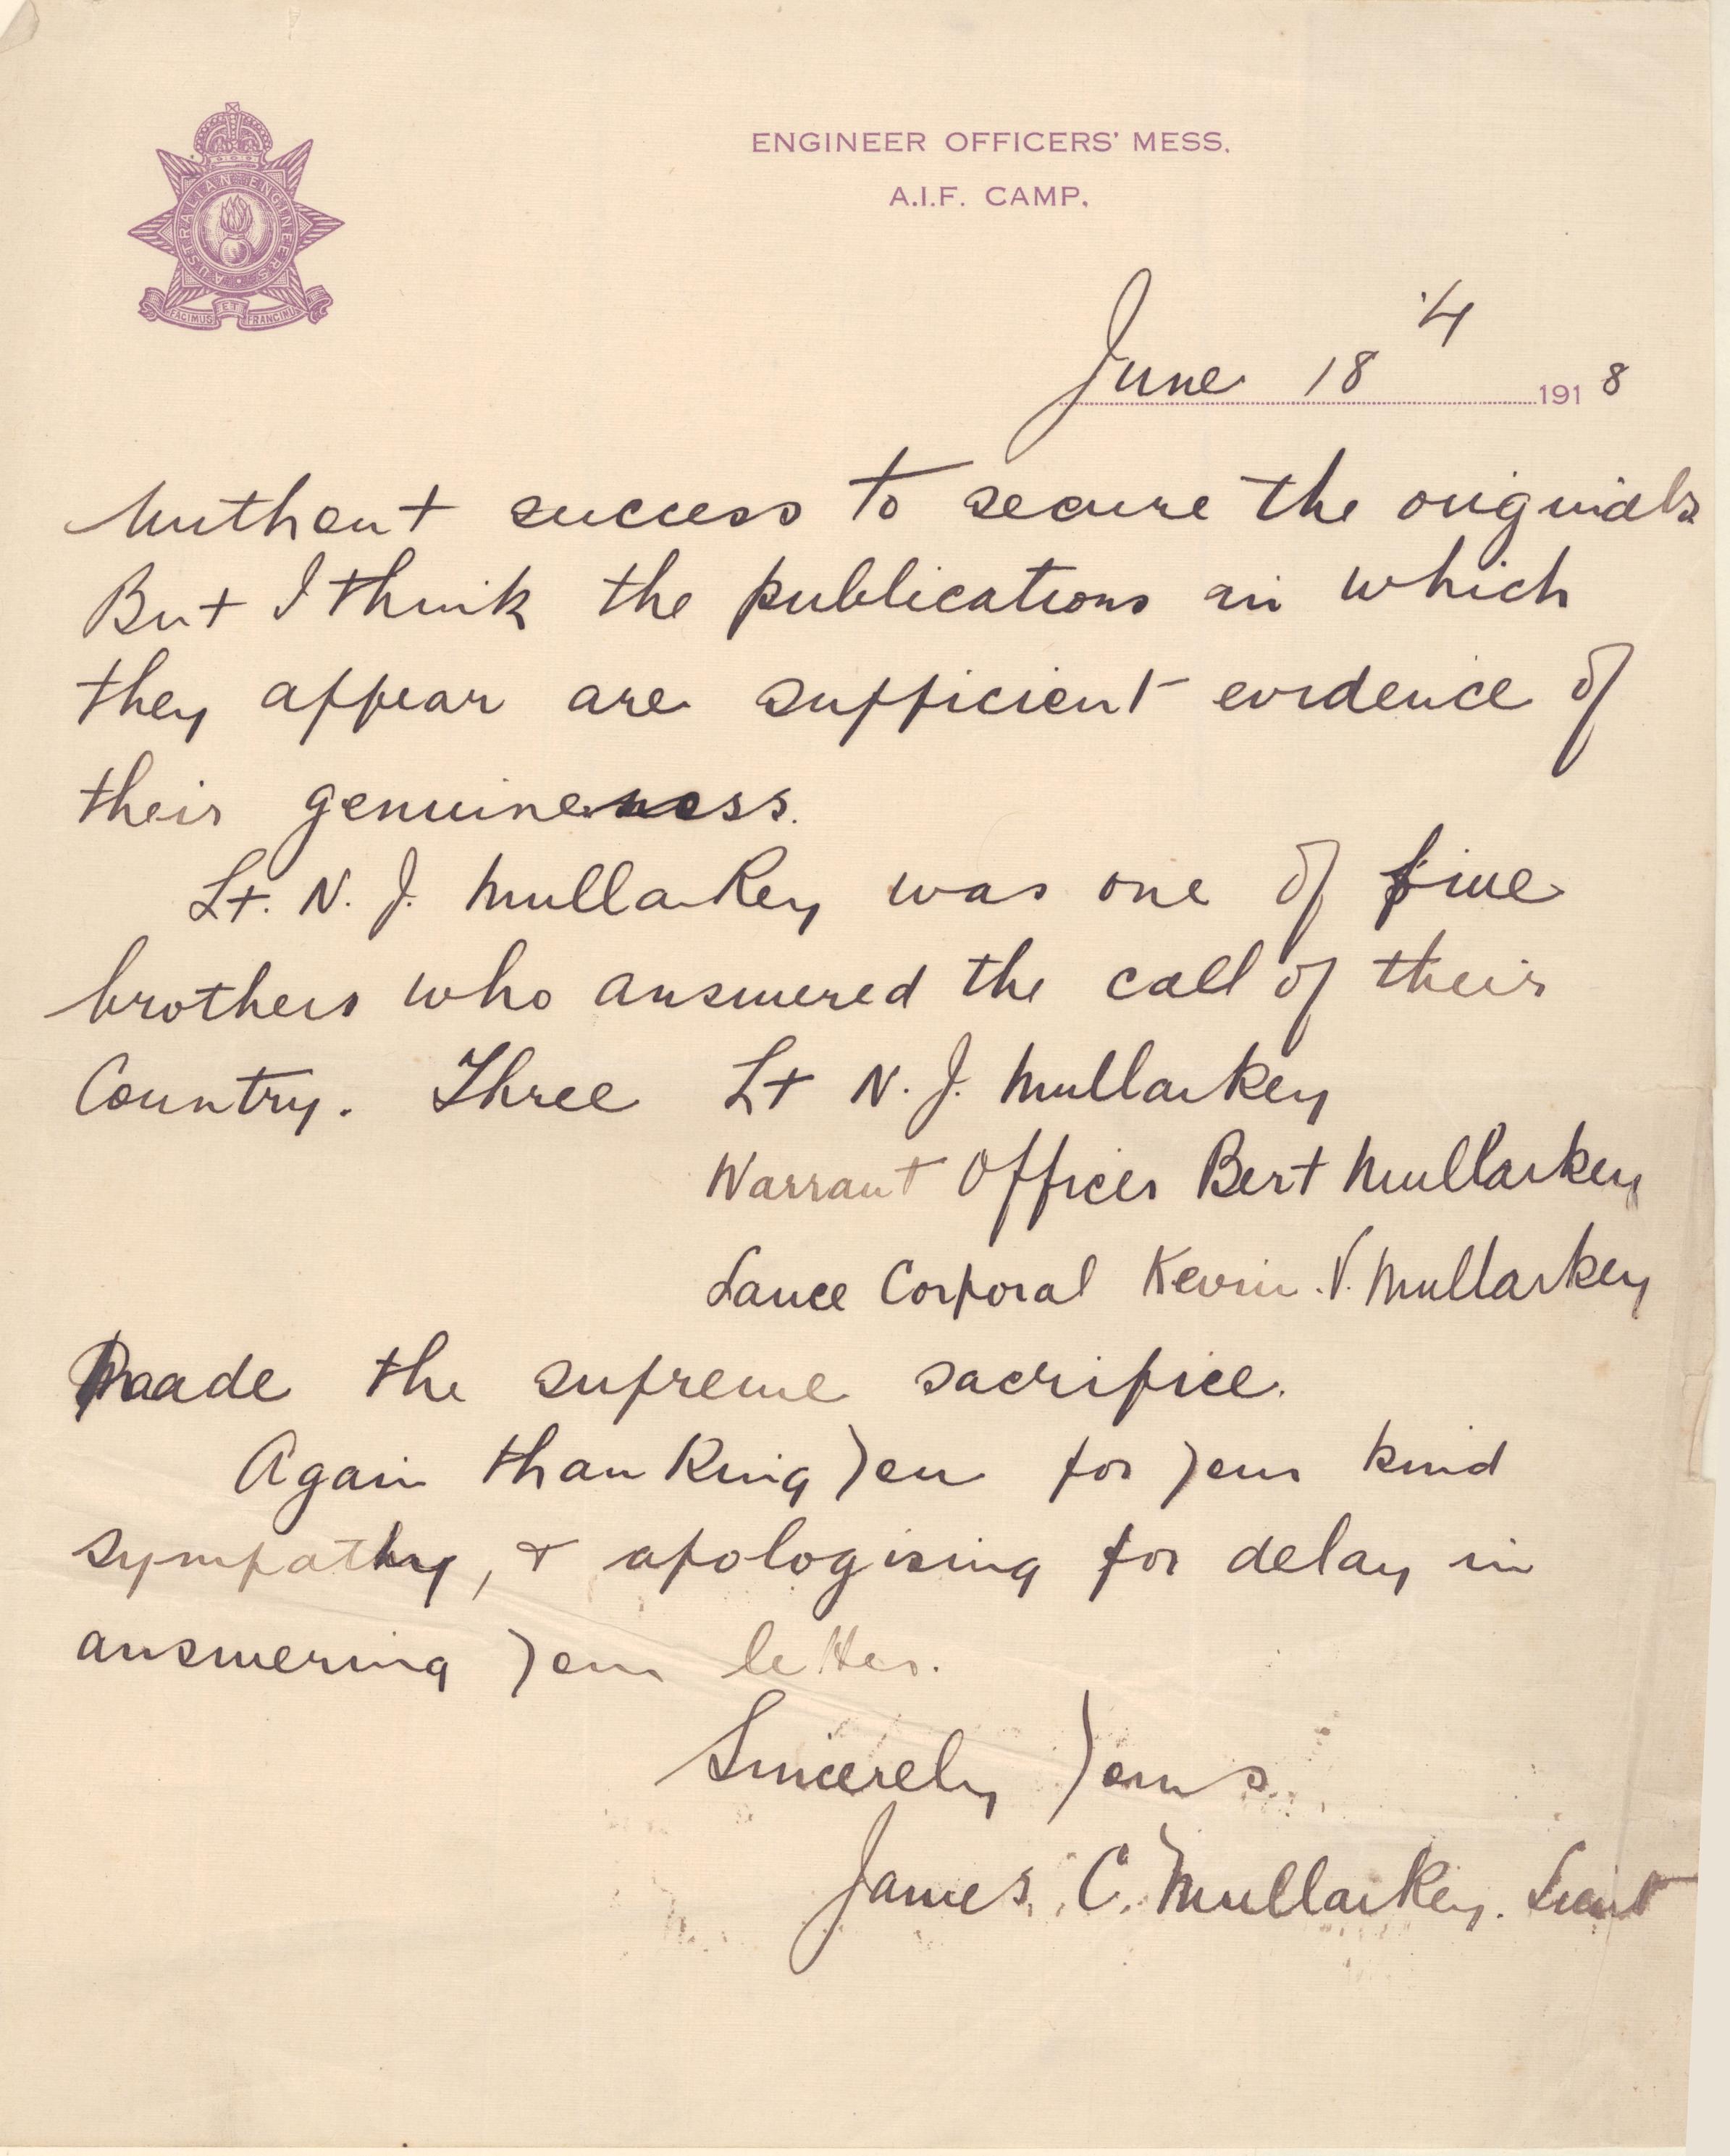 AUSTRALIAN ENGINEERS
FACIMUS ET FRANGIMUS
ENGINEER OFFICERS' MESS.
A.I.F. CAMP.
June 18th 1918
without success to secure the originals
But I think the publications in which
they appear are sufficient evidence of
their genuineness.
Lt. N. J. Mullarkey was one of five
brothers who answered the call of their
Country. Three Lt N. J. Mullarkey
Warrant Officer Bert Mullarkey
Lance Corporal Kevin V. Mullarkey
Made the supreme sacrifice.
Again thanking you for your kind
sympathy, & apologising for delay in
answering your letter.
Sincerely Yours
James C. Mullarkey. Lieut